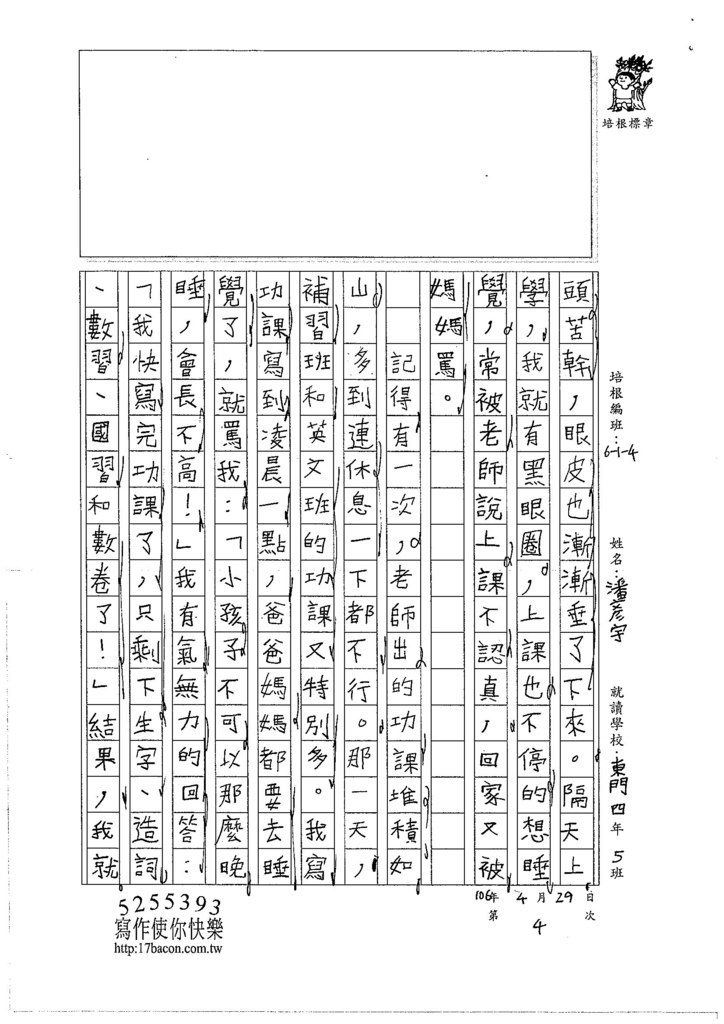 培根標章
培根編班：6-1-4
姓名：潘彥宇
就讀學校：東門四年5班
106年4月29日
第4次
頭苦幹，眼皮也漸漸垂了下來。隔天上
學，我就有黑眼圈，上課也不停的想睡
覺，常被老師說上課不認真，回家又被
媽媽罵。
記得有一次，老師出的功課堆積如
山，多到連休息一下都不行。那一天，
補習班和英文班的功課又特別多。我寫
功課寫到凌晨一點，爸爸媽媽都要去睡
覺了，就罵我：「小孩子不可以那麼晚
睡，會長不高！」我有氣無力的回答：
「我快寫完功課了，只剩下生字、造詞
、數習、國習和數卷了！」結果，我就
5255393
寫作使你快樂
http:17bacon.com.tw